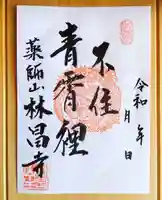 令和 年 月 日
不住
青霄裡
薬師山林昌寺